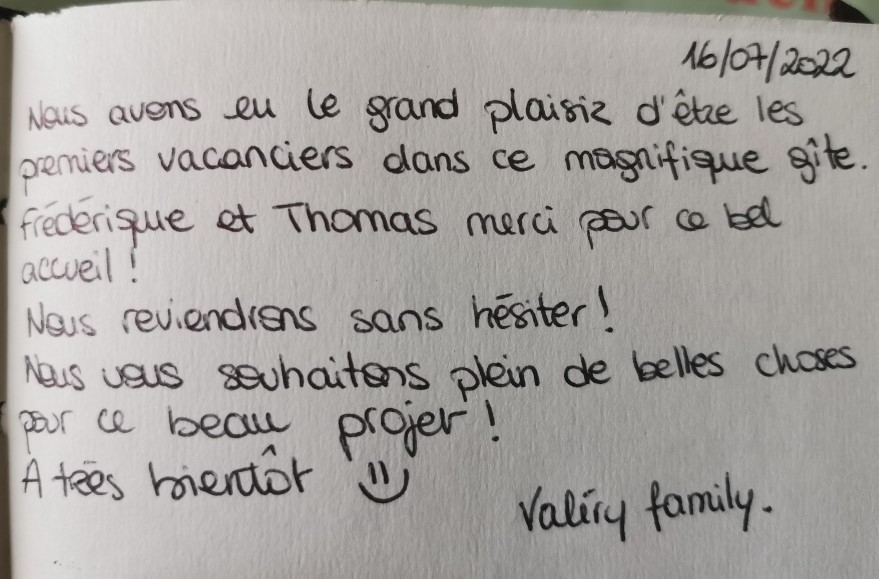 16/07/2022
Nous avons eu le grand plaisir d'être les
premiers vacanciers dans ce magnifique gîte.
Frédérique et Thomas merci pour ce bel
accueil !
Nous reviendrons sans hésiter !
Nous vous souhaitons plein de belles choses
pour ce beau projet !
A très bientôt
Valéry family.